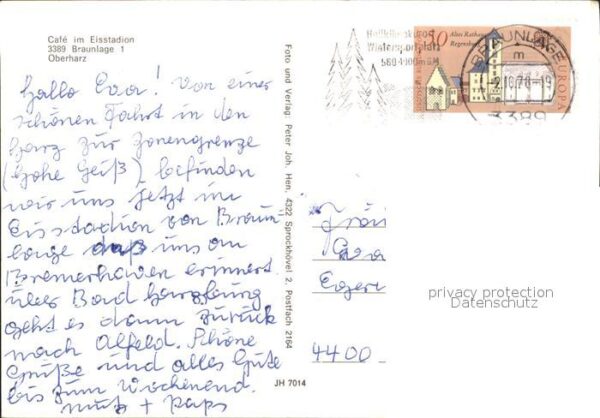 Café im Eisstadion
3389 Braunlage 1
Oberharz
Hallo Eva! Von einer
schönen Fahrt in den
Harz zur Zonengrenze
(Hohe Geiß) befinden
wir uns jetzt im
Eisstadion von Braun-
lage daß uns an
Bremerhaven erinnert.
Über Bad Harzburg
geht es dann zurück
nach Alfeld. Schöne
Grüße und alles Gute
bis zum Wochenend.
+ Paps
Foto und Verlag: Peter Joh. Hen, 4322 Sprockhövel 2, Postfach 2164
JH 7014
Wintersportplatz
560-1000 m
30 Altes Rathaus
Regensburg
EUROPA
BRAUNLAGE
m
78-19
3389
4400
privacy protection
Datenschutz